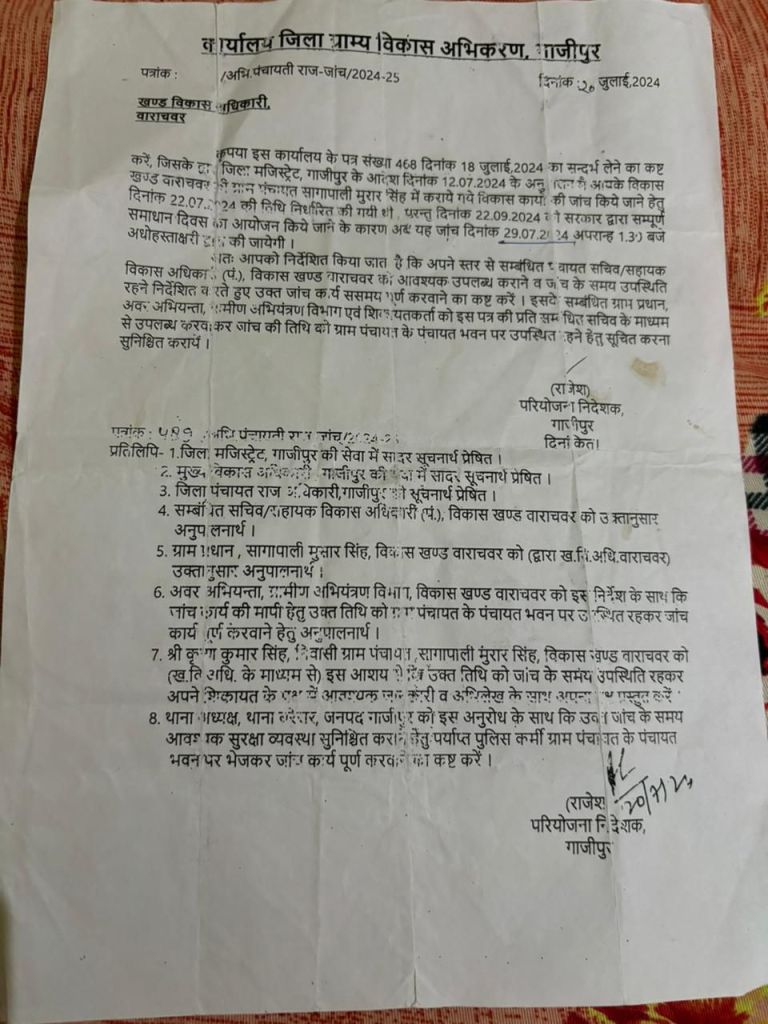 कार्यालय जिला ग्राम्य विकास अभिकरण, गाजीपुर
पत्रांक : /अभि.पंचायती राज-जांच/2024-25 दिनांक : 20 जुलाई,2024
खण्ड विकास अधिकारी,
वाराचवर
कृपया इस कार्यालय के पत्र संख्या 468 दिनांक 18 जुलाई,2024 का सन्दर्भ लेने का कष्ट
करें, जिसके द्वारा जिला मजिस्ट्रेट, गाजीपुर के आदेश दिनांक 12.07.2024 के में आपके विकास
खण्ड वाराचवर की ग्राम पंचायत सागापाली मुरार सिंह में कराये गये विकास कार्यों की जांच किये जाने हेतु
दिनांक 22.07.2024 की तिथि निर्धारित की गयी थी, परन्तु दिनांक 22.09.2024 को सरकार द्वारा सम्पूर्ण
समाधान दिवस का आयोजन किये जाने के कारण अब यह जांच दिनांक 29.07.2024 अपरान्ह 1.30 बजे
अधोहस्ताक्षरी द्वारा की जायेगी ।
अतः आपको निर्देशित किया जाता है कि अपने स्तर से सम्बंधित पंचायत सचिव/सहायक
विकास अधिकारी (पं.), विकास खण्ड वाराचवर को आवश्यक उपलब्ध कराने व जांच के समय उपस्थिति
रहने निर्देशित करते हुए उक्त जांच कार्य ससमय पूर्ण करवाने का कष्ट करें । इसके सम्बंधित ग्राम प्रधान,
अवर अभियन्ता, ग्रामीण अभियंत्रण विभाग एवं शिकायतकर्ता को इस पत्र की प्रति सम्बंधित सचिव के माध्यम
से उपलब्ध करवाकर जांच की तिथि को ग्राम पंचायत के पंचायत भवन पर उपस्थित रहने हेतु सूचित करना
सुनिश्चित करायें ।
(राजेश)
परियोजना निदेशक,
गाजीपुर
दिनांकित।
पत्रांक : 489 /अभि पंचायती राज जांच/2024-25
प्रतिलिपि- 1.जिला मजिस्ट्रेट, गाजीपुर की सेवा में सादर सूचनार्थ प्रेषित ।
2. मुख्य विकास अधिकारी, गाजीपुर की सेवा में सादर सूचनार्थ प्रेषित ।
3. जिला पंचायत राज अधिकारी,गाजीपुर को सूचनार्थ प्रेषित ।
4. सम्बंधित सचिव/सहायक विकास अधिकारी (पं.), विकास खण्ड वाराचवर को उक्तानुसार
अनुपालनार्थ ।
5. ग्राम प्रधान , सागापाली मुरार सिंह, विकास खण्ड वाराचवर को (द्वारा ख.वि.अधि.वाराचवर)
उक्तानुसार अनुपालनार्थ ।
6. अवर अभियन्ता, ग्रामीण अभियंत्रण विभाग, विकास खण्ड वाराचवर को इस निर्देश के साथ कि
जांच कार्य की मापी हेतु उक्त तिथि को ग्राम पंचायत के पंचायत भवन पर उपस्थित रहकर जांच
कार्य पूर्ण करवाने हेतु अनुपालनार्थ ।
7. श्री कृष्ण कुमार सिंह, निवासी ग्राम पंचायत,सागापाली मुरार सिंह, विकास खण्ड वाराचवर को
(ख.वि अधि. के माध्यम से) इस आशय से कि उक्त तिथि को जांच के समय उपस्थिति रहकर
अपने शिकायत के पक्ष में आवश्यक जानकारी व अभिलेख के साथ अपना पक्ष प्रस्तुत करें ।
8. थाना अध्यक्ष, थाना जनपद गाजीपुर को इस अनुरोध के साथ कि उक्त जांच के समय
आवश्यक सुरक्षा व्यवस्था सुनिश्चित कराने हेतु पर्याप्त पुलिस कर्मी ग्राम पंचायत के पंचायत
भवन पर भेजकर जांच कार्य पूर्ण करवाने का कष्ट करें ।
(राजेश) 20/7/24
परियोजना निदेशक,
गाजीपुर